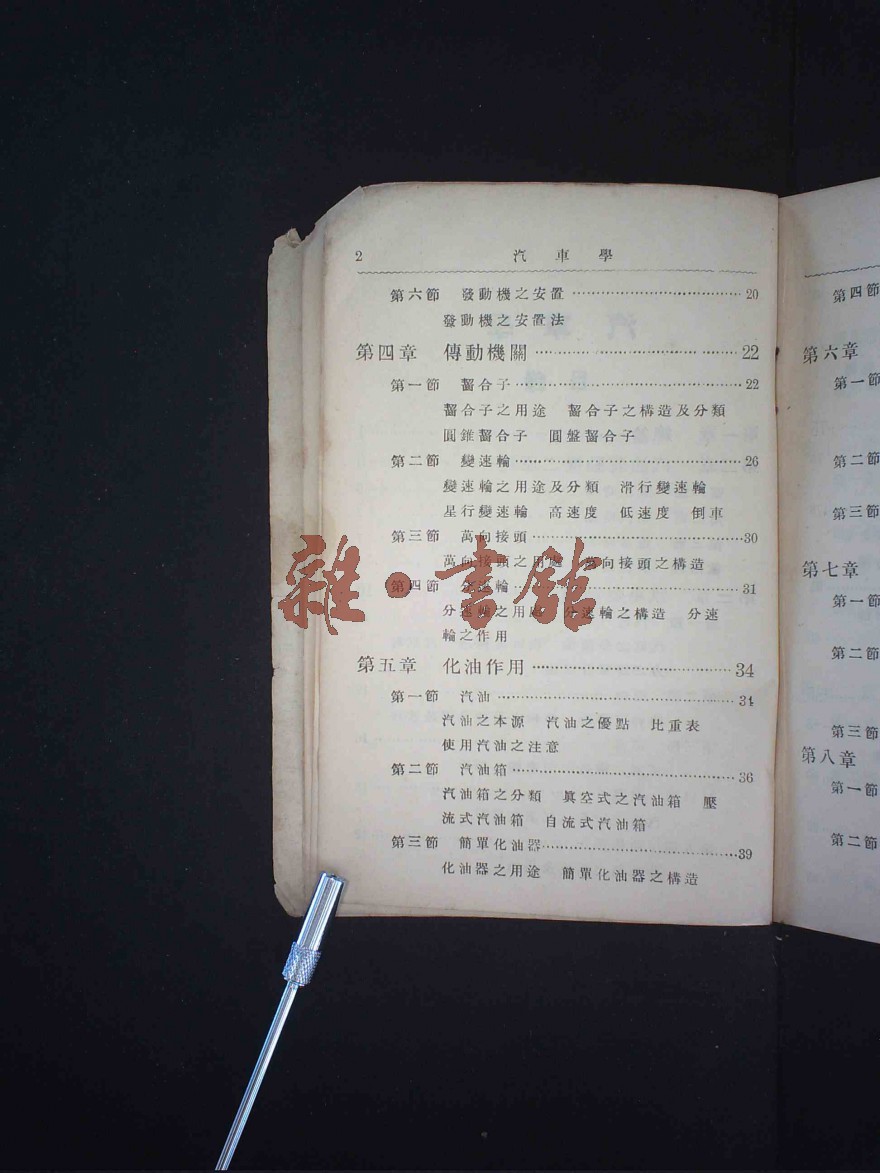 2 汽車學
第六節 發動機之安置 20
發動機之安置法
第四章 傳動機關 22
第一節 齧合子 22
齧合子之用途 齧合子之構造及分類
圓錐齧合子 圓盤齧合子
第二節 變速輪 26
變速輪之用途及分類 滑行變速輪
星行變速輪 高速度 低速度 倒車
第三節 萬向接頭 30
萬向接頭之用處 萬向接頭之構造
第四節 分速輪 31
分速輪之用處 分速輪之構造 分速
輪之作用
第五章 化油作用 34
第一節 汽油 34
汽油之本源 汽油之優點 比重表
使用汽油之注意
第二節 汽油箱 36
汽油箱之分類 眞空式之汽油箱 壓
流式汽油箱 自流式汽油箱
第三節 簡單化油器 39
化油器之用途 簡單化油器之構造
雜·書館
第四節
第六章
第一節
第二節
第三節
第七章
第一節
第二節
第三節
第八章
第一節
第二節